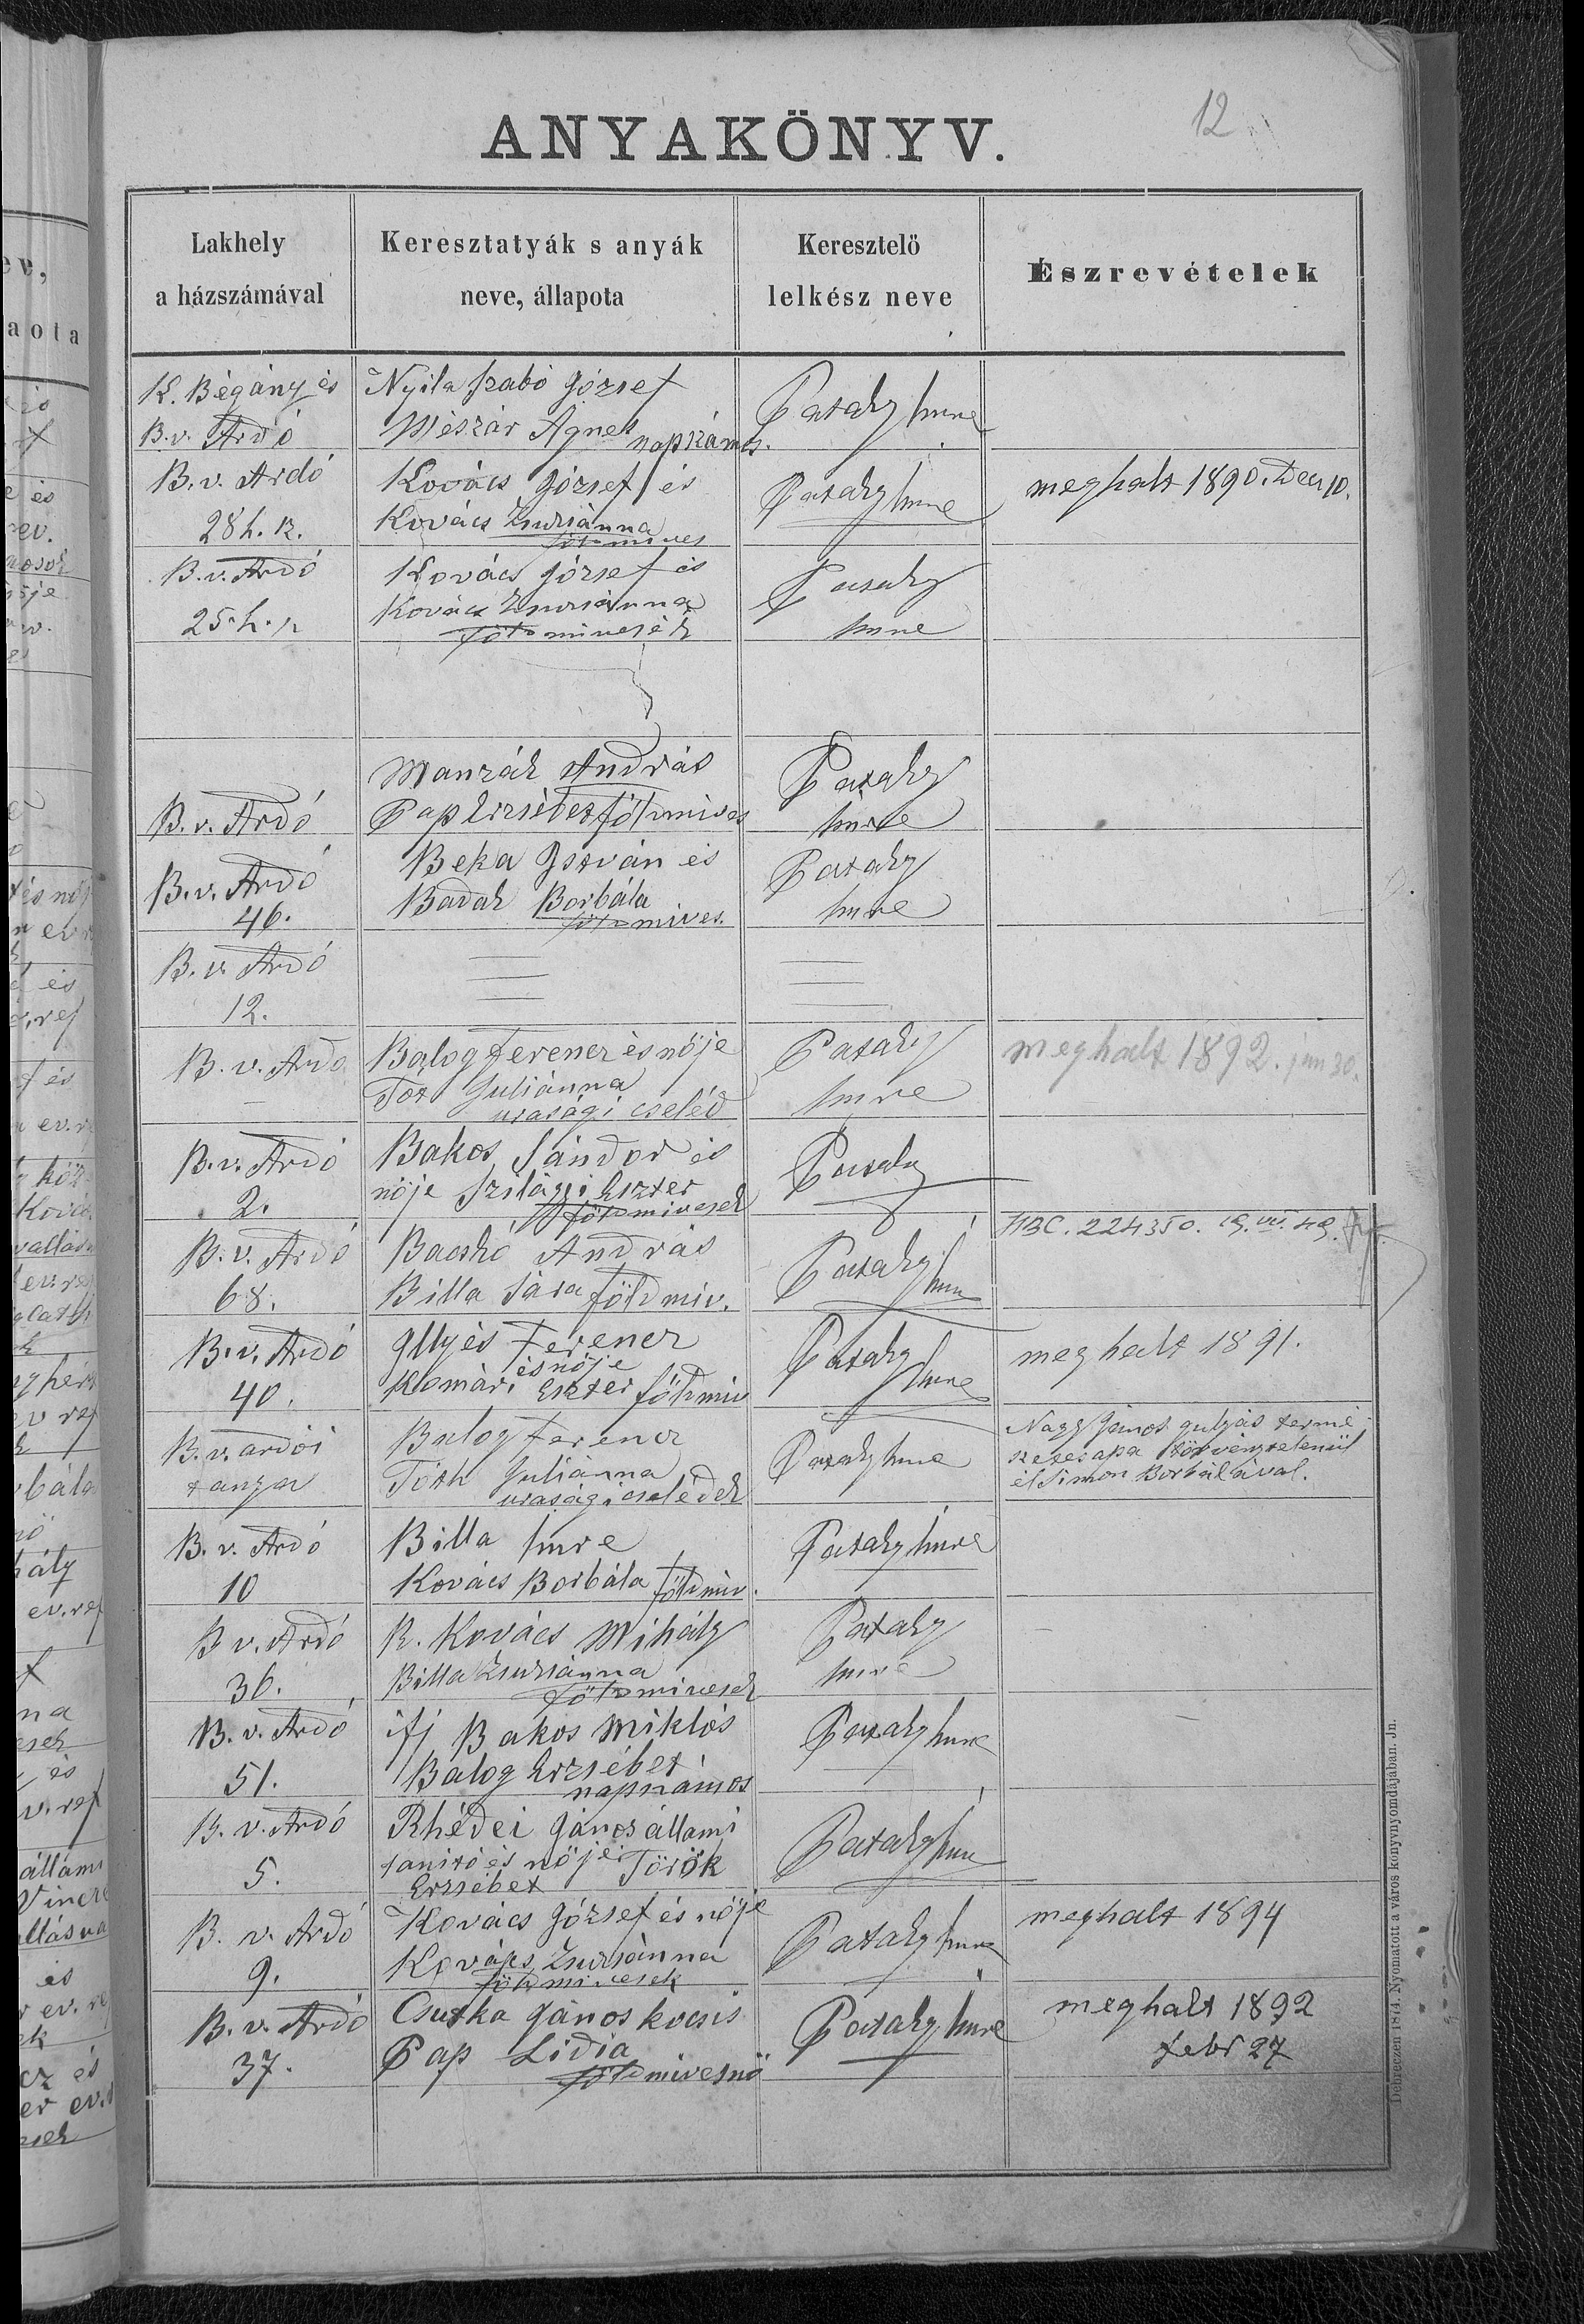 12
ANYAKÖNYV.
Lakhely
a házszámával
Keresztatyák s anyák
neve, állapota
Keresztelö
lelkész neve
Észrevételek
K. Bégány és
B. v. Ardó
Nyila Szabó József
Mészár Ágnes napszámos.
Pataky Imre
B. v. Ardó
28 h. sz.
Kovács József és
Kovács Zsuzsánna
földmives
Pataky Imre
meghalt 1890. Dec 10.
B. v. Ardó
25. h. sz
Kovács József és
Kovács Zsuzsánna
földmivesék
Pataky
Imre
B. v. Ardó
Manzák András
Pap Erzsébet földmives
Pataky
Imre
B. v. Ardó
46.
Beka István és
Badak Borbála
földmives.
Pataky
Imre
B. v. Ardó
12.
B. v. Ardó
Balog Ferencz és nöje
Tót Juliánna
urasági cseléd
Pataky
Imre
meghalt 1892. jun 30.
B. v. Ardó
2.
Bakos Sándor és
nöje Szilágyi Eszter
földmivesek
Pataky
B. v. Ardó
68.
Bacskó András
Billa Sára földmiv.
Pataky Imre
НВС. 224350. 19. VII. 49.
B. v. Ardó
40.
Illyés Ferencz
és nöje
Komári Eszter földmiv
Pataky
Imre
meghalt 1891.
B. v. ardói
tanya
Balog Ferencz
Tóth Juliánna
urasági cselédek
Pataky Imre
Nagy János gulyás termé
szetes apa törvénytelenül
él Simon Borbálával.
B. v. Ardó
10
Billa Imre
Kovács Borbála földmiv.
Pataky Imre
B v. Ardó
36.
K. Kovács Mihály
Billa Zsuzsánna
földmivesek
Pataky
Imre
B. v. Ardó
51.
ifj Bakos Miklós
Balog Erzsébet
napszámos
Pataky Imre
B. v. Ardó
5.
Rhédei János állami
tanitó és nöje Török
Erzsébet
Pataky Imre
B. v. Ardó
9.
Kovács József és nöje
Kovács Zsuzsánna
földmivesek
Pataky Imre
meghalt 1894
B. v. Ardó
37.
Csutka János kocsis
Pap Lidia
földmivesnö
Pataky Imre
meghalt 1892
febr 27
Debreczen 1874. Nyomatott a város könyvnyomdájában. Jn.